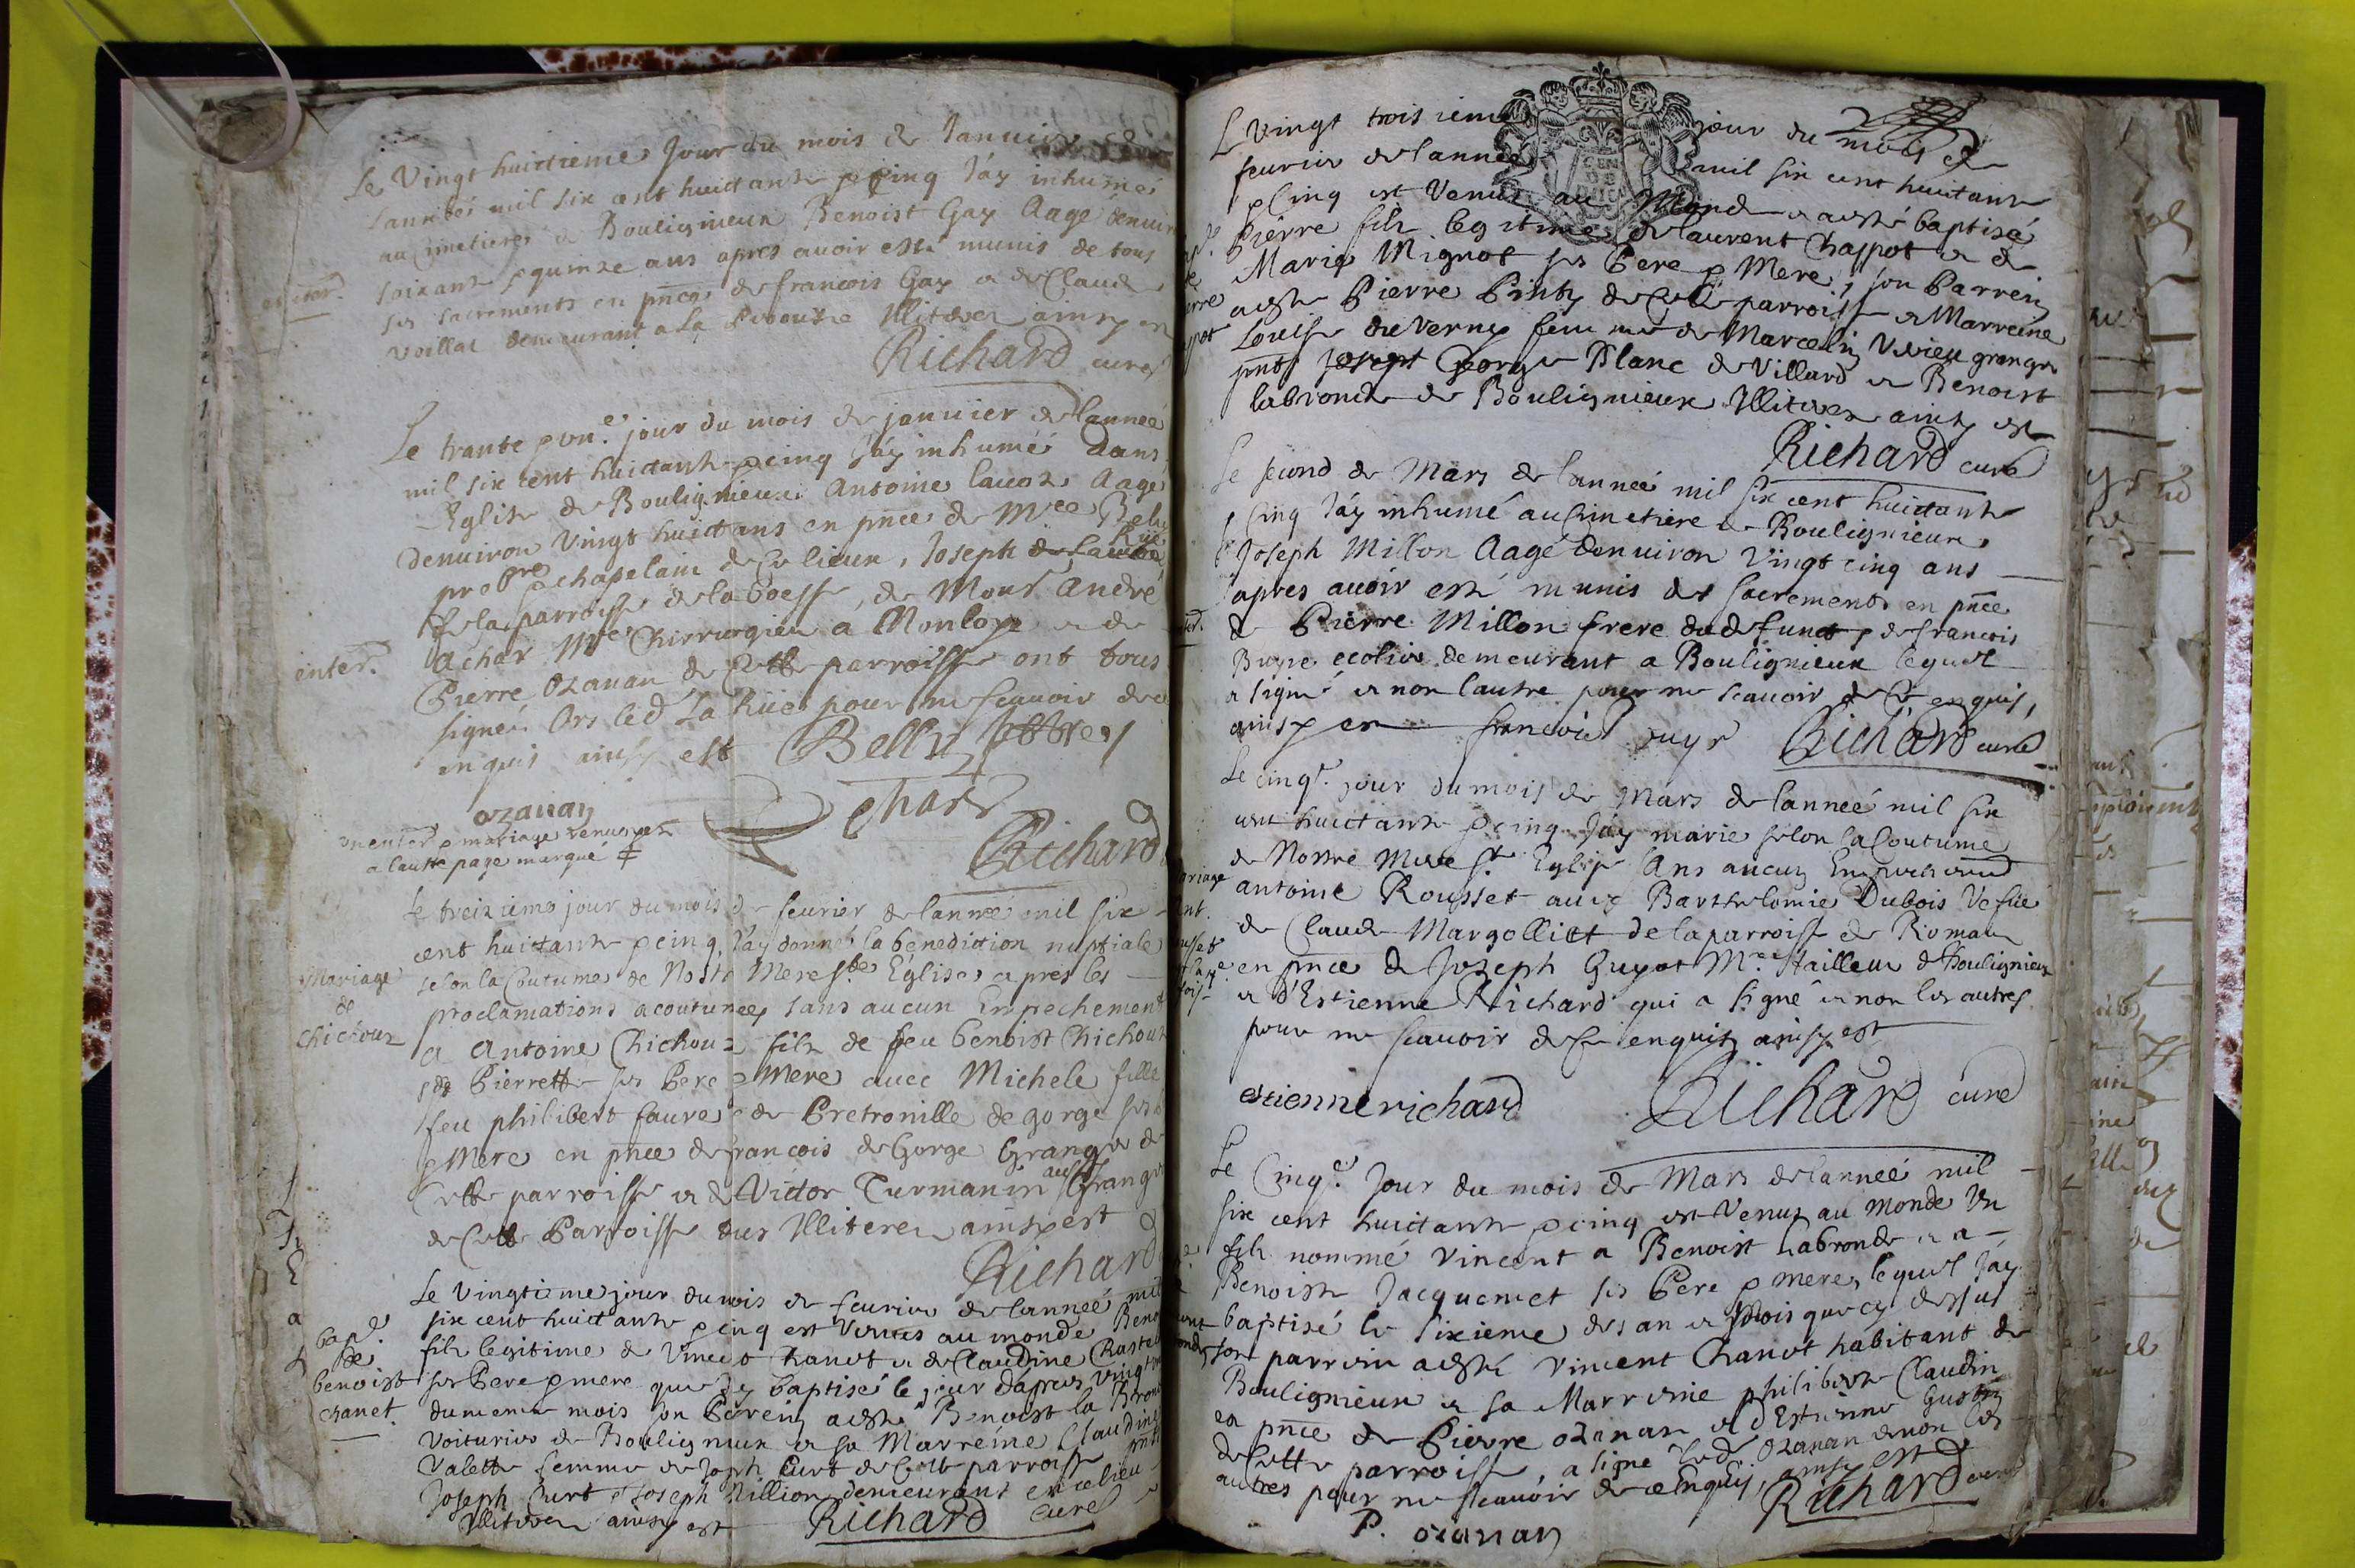 Le Vingt huictieme Jour du mois de Januier de
lannéé mil six cent huictante & cinq Jáy inhumé
au cimetiere de Boulignieux Benoist Gay Aagé denuiron
soixante & quinze ans apres auoir esté munis de tous
enter.
ses sacrements en pñce de francois Gay & de Claude
voillat demeurant a La Illiteres ainsy est
Richard curé
Le trante & vne. jour du mois de januier de lannéé
mil six cent huictante & cinq Jáy inhumé Dans
Eglise de Boulignieux Antoine lauoz Aagé
denuiron Vingt huict ans en pñce de Mre Belly
probre & chapelain de Ce lieux, Joseph de la Rüe
de la parroisse de la boesse, de Monsr André
Achar Mre Chirurgien a Monloye & de
enter.
Pierre Ozanan de Cette parroisse ont tous
signéz Ors led La Rüe pour ne scauoir de ce
enquis ainsy est Belly pbtre
ozanan
Achard
vn enter & mariage
a lautre page marqué ‡
Richard
Le treizieme jour du mois de feurier de lanneé mil six
cent huictante & cinq Jáy donné la benediction nuptiale
Mariage
de
Chichoux
selon la Coutume de Nostre Mere Ste Église apres les
proclamations acoutumeés sans aucun Empechement
a Antoine Chichoux fils de feu benoist Chichoux
& de Pierrette ses Pere & Mere auec Michele fille
feu philibert faure & de Pretronille de gorge ses
& Mere en pñce de francois de Gorge Granger de
Cette parroisse & de Victor Turmanin aussy Granger
de Cette Parroisse tous Illiteres ainsy est
Richard
Le Vingtieme jour du mois de feurier de lanneé mil
six cent huictante & cinq est Venus au monde Benoist
bape.
de
benoist
chanet
fils legitime de Vincent Chanet & de Claudine Chastel
ses Pere & mere que jáy baptisé le jour dapres Vingt vn
du meme mois son Parein a esté Benoist la Bronde
Voiturier de Boulignieux & sa Marreine Claudine
Valette femme de Joseph Curt de Cette parroisse pñts
Joseph Curt & Joseph Million demeurant en ce lieu
Illiteres ainsy est Richard curé
Le Vingt troisieme jour du mois de
feurier de lanneé mil six cent huictante
& Cinq est Venus au Monde & a esté baptisé
Pierre fils legitime de laurent Chappot & de
Marie Mignot ses Pere & Mere, son Parrein
a esté Pierre Pinty de Cette parroisse & Marreine
Louise du Verny femme de Marcelin Viuieu granger
pñts George Blanc de Villard & Benoist
labronde de Boulignieux Illiteres ainsy est
Richard curé
Le second de Mars de lanneé mil six cent huictante
& Cinq Jáy inhumé au Cimetiere de Boulignieux
Joseph Millon Aagé denuiron Vingt cinq ans
apres auoir esté munis des sacrements en pñce
de Pierre Millon frere du defunct & de francois
Buyre ecolier demeurant a Boulignieux lequel
a signé & non lautre pour ne scauoir de Ce enquis,
ainsy est francois Richard curé
Le cinqe. jour du mois de Mars de lanneé mil six
cent huictante & cinq Jáy marie selon la Coutume
de Nostre Mere Ste Eglise sans aucun Empechement
antoine Rousset auec Barthelomie Dubois Vefue
de Claude Margolliet de la parroisse de Romans
en pñce de Joseph Guyot Mre tailleur de Boulignieux
& d'Estienne Richard qui a signé & non les autres
pour ne scauoir de Ce enquis ainsy est
estienne richard Richard curé
Le Cinqe. Jour du mois de Mars de lanneé mil
six cent huictante & cinq est Venus au monde Un
fils nommé Vincent a Benoist Labronde & a
Benoiste Jacquemet ses Pere & mere, lequel Jáy
baptisé le sixieme des an & mois que cy dessus
son parrein a esté Vincent Chanet habitant de
Boulignieux & sa Marreine philiberte Claudin
en pñce de Pierre Ozanan & d'Estienne
de Cette parroisse, a signé led. Ozanan & non les
autres pour ne scauoir de ce enquis, ainsy est
Richard curé
P. ozanan